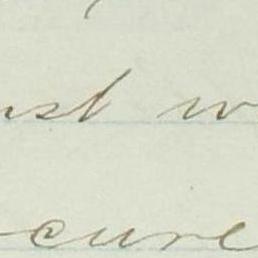 ust w
cure